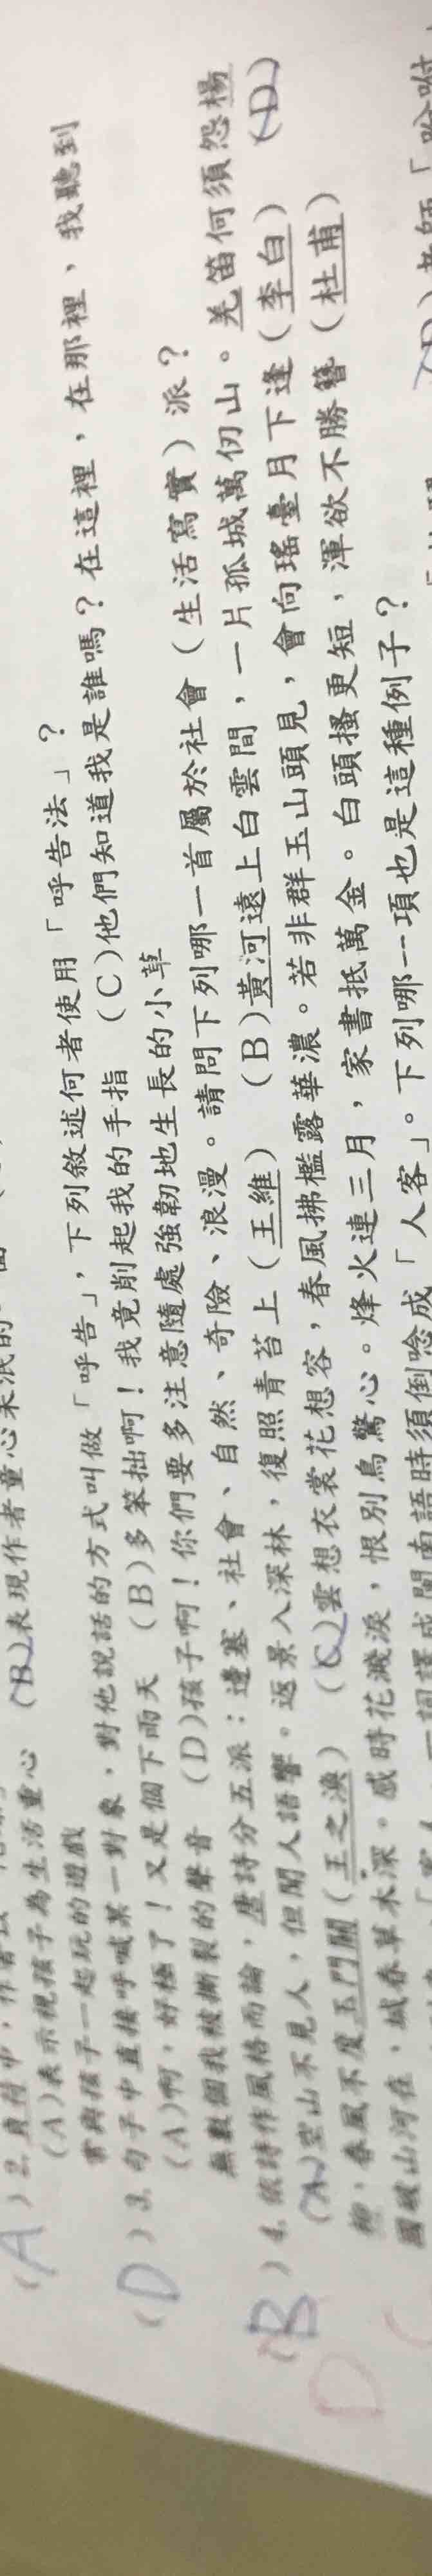 (A) 2.
(A)表示視孩子為生活重心 (B)表現作者童心未泯的
常與孩子一起玩的遊戲
(D) 3. 句子中直接呼喊某一對象，對他說話的方式叫做「呼告」，下列敘述何者使用「呼告法」？
(A)啊，好極了！又是個下雨天 (B)多笨拙啊！我竟削起我的手指 (C)他們知道我是誰嗎？在這裡，在那裡，我聽到
無數個我被撕裂的聲音 (D)孩子啊！你們要多注意隨處強韌地生長的小草
(B) 4. 依詩作風格而論，唐詩分五派：邊塞、社會、自然、奇險、浪漫。請問下列哪一首屬於社會（生活寫實）派？
D (A)空山不見人，但聞人語響。返景入深林，復照青苔上（王維） (B)黃河遠上白雲間，一片孤城萬仞山。羌笛何須怨楊
柳，春風不度玉門關（王之渙） (C)雲想衣裳花想容，春風拂檻露華濃。若非群玉山頭見，會向瑤臺月下逢（李白） (D)
國破山河在，城春草木深。感時花濺淚，恨別鳥驚心。烽火連三月，家書抵萬金。白頭搔更短，渾欲不勝簪（杜甫）
一詞譯成閩南語時須倒唸成「人客」。下列哪一項也是這種例子？
(D)老師「吩咐」